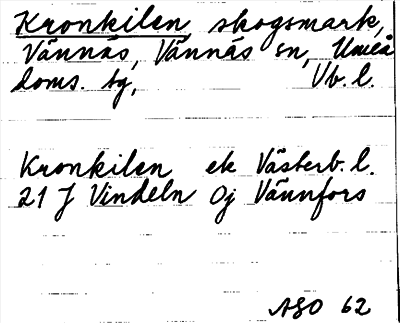 Kronkilen, skogsmark,
Vännäs, Vännäs sn, Umeå
doms. tg, Vb. l.
Kronkilen ek Västerb. l.
21 J Vindeln 0j Vännfors
ASO 62